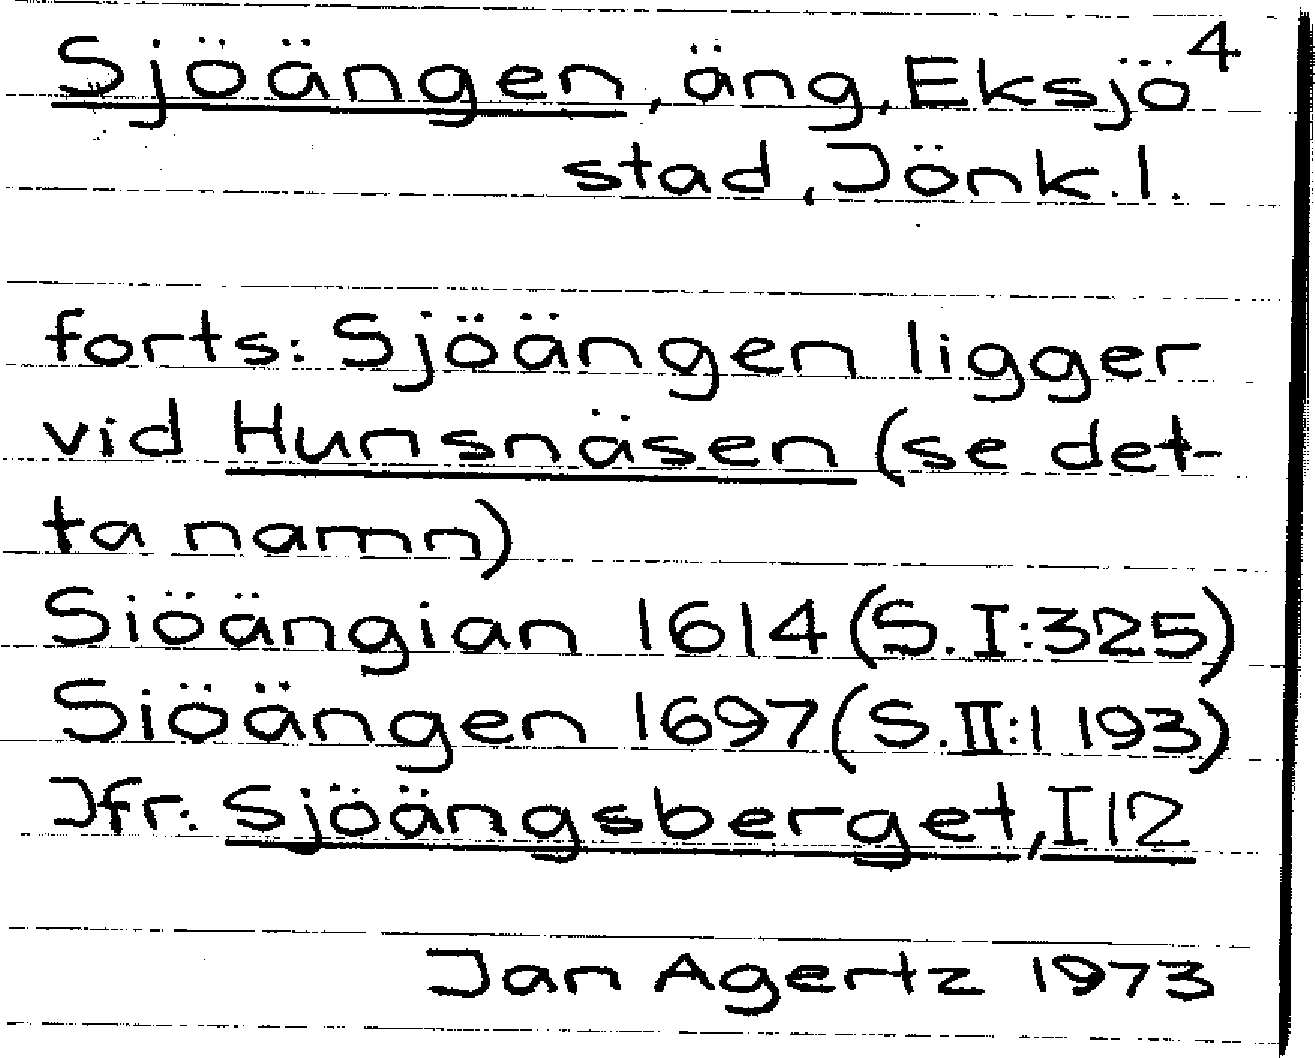 Sjöängen, äng, Eksjö 4
stad, Jönk.l.
forts: Sjöängen ligger
vid Hunsnäsen (se det-
ta namn)
Siöängian 1614 (S.I:325)
Siöängen 1697 (S.II:1 193)
Jfr: Sjöängsberget, I12
Jan Agertz 1973